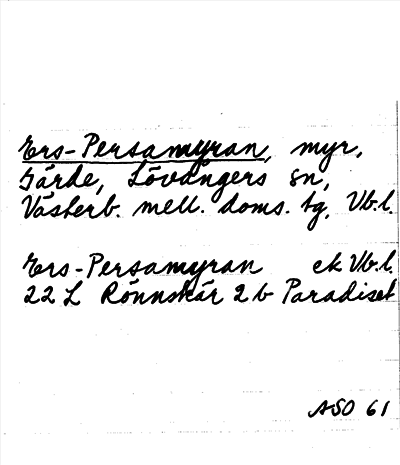 Ers-Persamyran, myr,
Gärde, Lövångers sn,
Västerb. mell. doms. tg, Vb.l.
Ers-Persamyran ek Vb.l.
22 L Rönnskär 2 b Paradiset
ASO 61